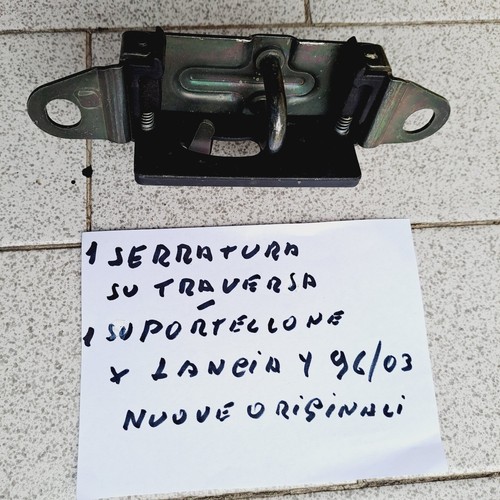 1 SERRATURA
SU TRAVERSA
1 SU PORTELLONE
X LANCIA Y 96/03
NUOVE ORIGINALI